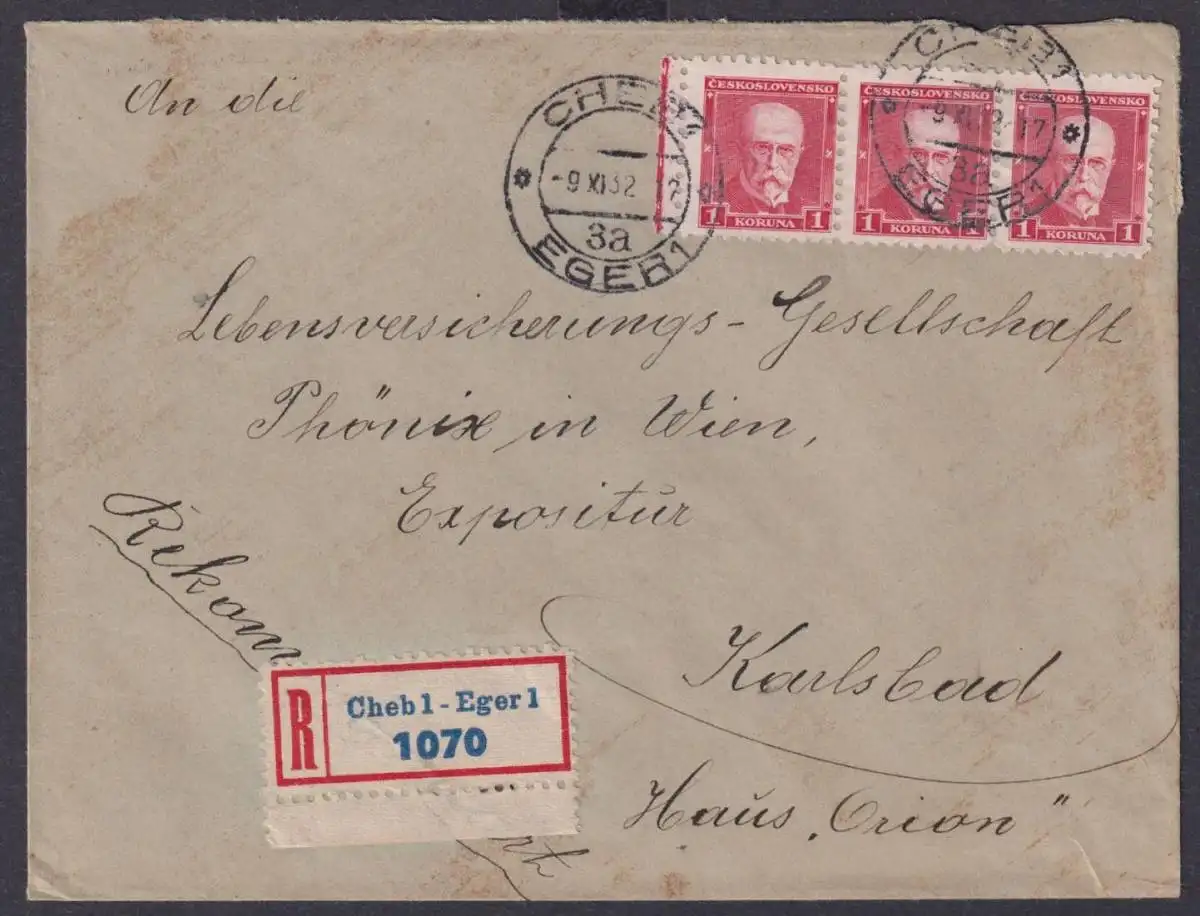 An die
CHEB 1
-9 XI 32 17
3a
EGER 1
CHEB 1
-9 XI 32 17
3a
EGER 1
ČESKOSLOVENSKO
1 KORUNA 1
ČESKOSLOVENSKO
1 KORUNA 1
ČESKOSLOVENSKO
1 KORUNA 1
Lebensversicherungs-Gesellschaft
Phönix in Wien,
Expositur
Karlsbad
Haus „Orion"
Rekom
R
Cheb 1 - Eger 1
1070